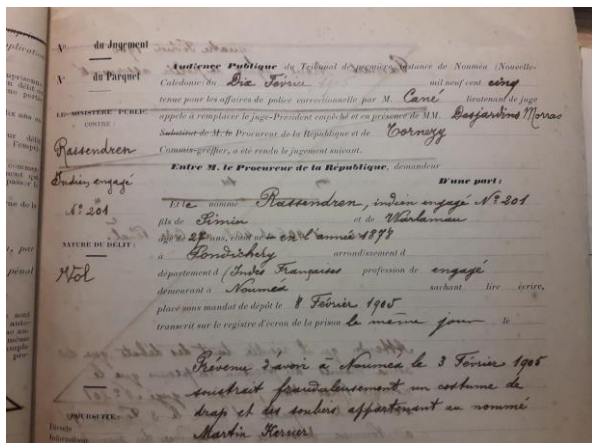 N° du Jugement
N° du Parquet
LE MINISTÈRE PUBLIC
CONTRE :
Rassendren
Indien engagé
N° 201
NATURE DU DÉLIT :
Vol
POURSUITE :
Directe
Audience Publique du Tribunal de première instance de Nouméa (Nouvelle-
Calédonie) du Dix Février mil neuf cent cinq
tenue pour les affaires de police correctionnelle par M. Cané lieutenant de juge
appelé à remplacer le juge-Président empêché et en présence de MM. Desjardins Morras
Substitut de M. le Procureur de la République et de Cornezy
Commis-greffier, a été rendu le jugement suivant.
Entre M. le Procureur de la République, demandeur
D'une part;
Et le nommé Rassendren, indien engagé N° 201
fils de Simien et de Warlaman
âgé de 27 ans, en l'année 1878
à Pondichéry arrondissement d
département d (Indes Françaises profession de engagé
demeurant à Nouméa sachant lire écrire,
placé sous mandat de dépôt le 8 Février 1905
transcrit sur le registre d'écrou de la prison le même jour le
Prévenu d'avoir à Nouméa le 3 Février 1905
soustrait frauduleusement un costume de
drap et des souliers appartenant au nommé
Martin Kerner